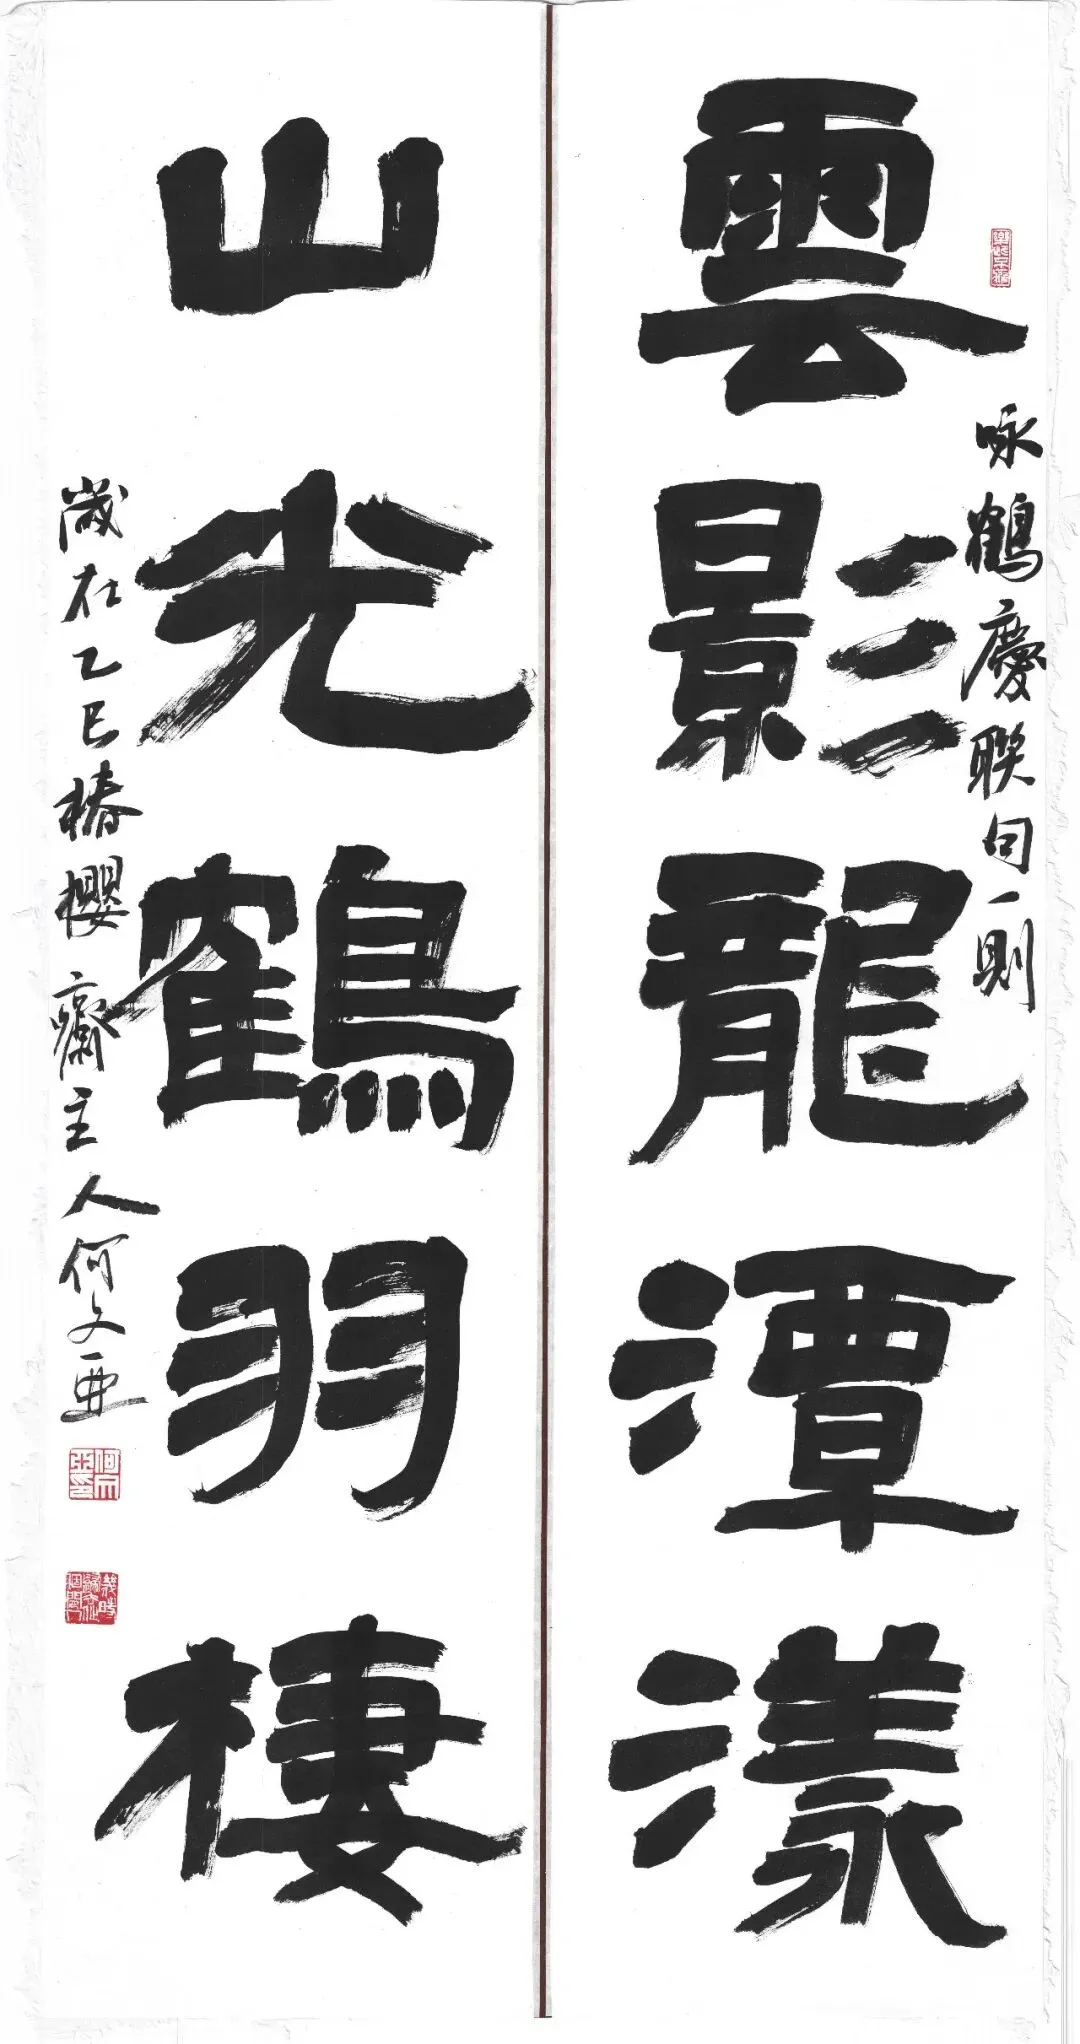 雲影龍潭漾
咏鶴慶聯句一則
山光鶴羽棲
歲在乙巳椿櫻齋主人何文亜